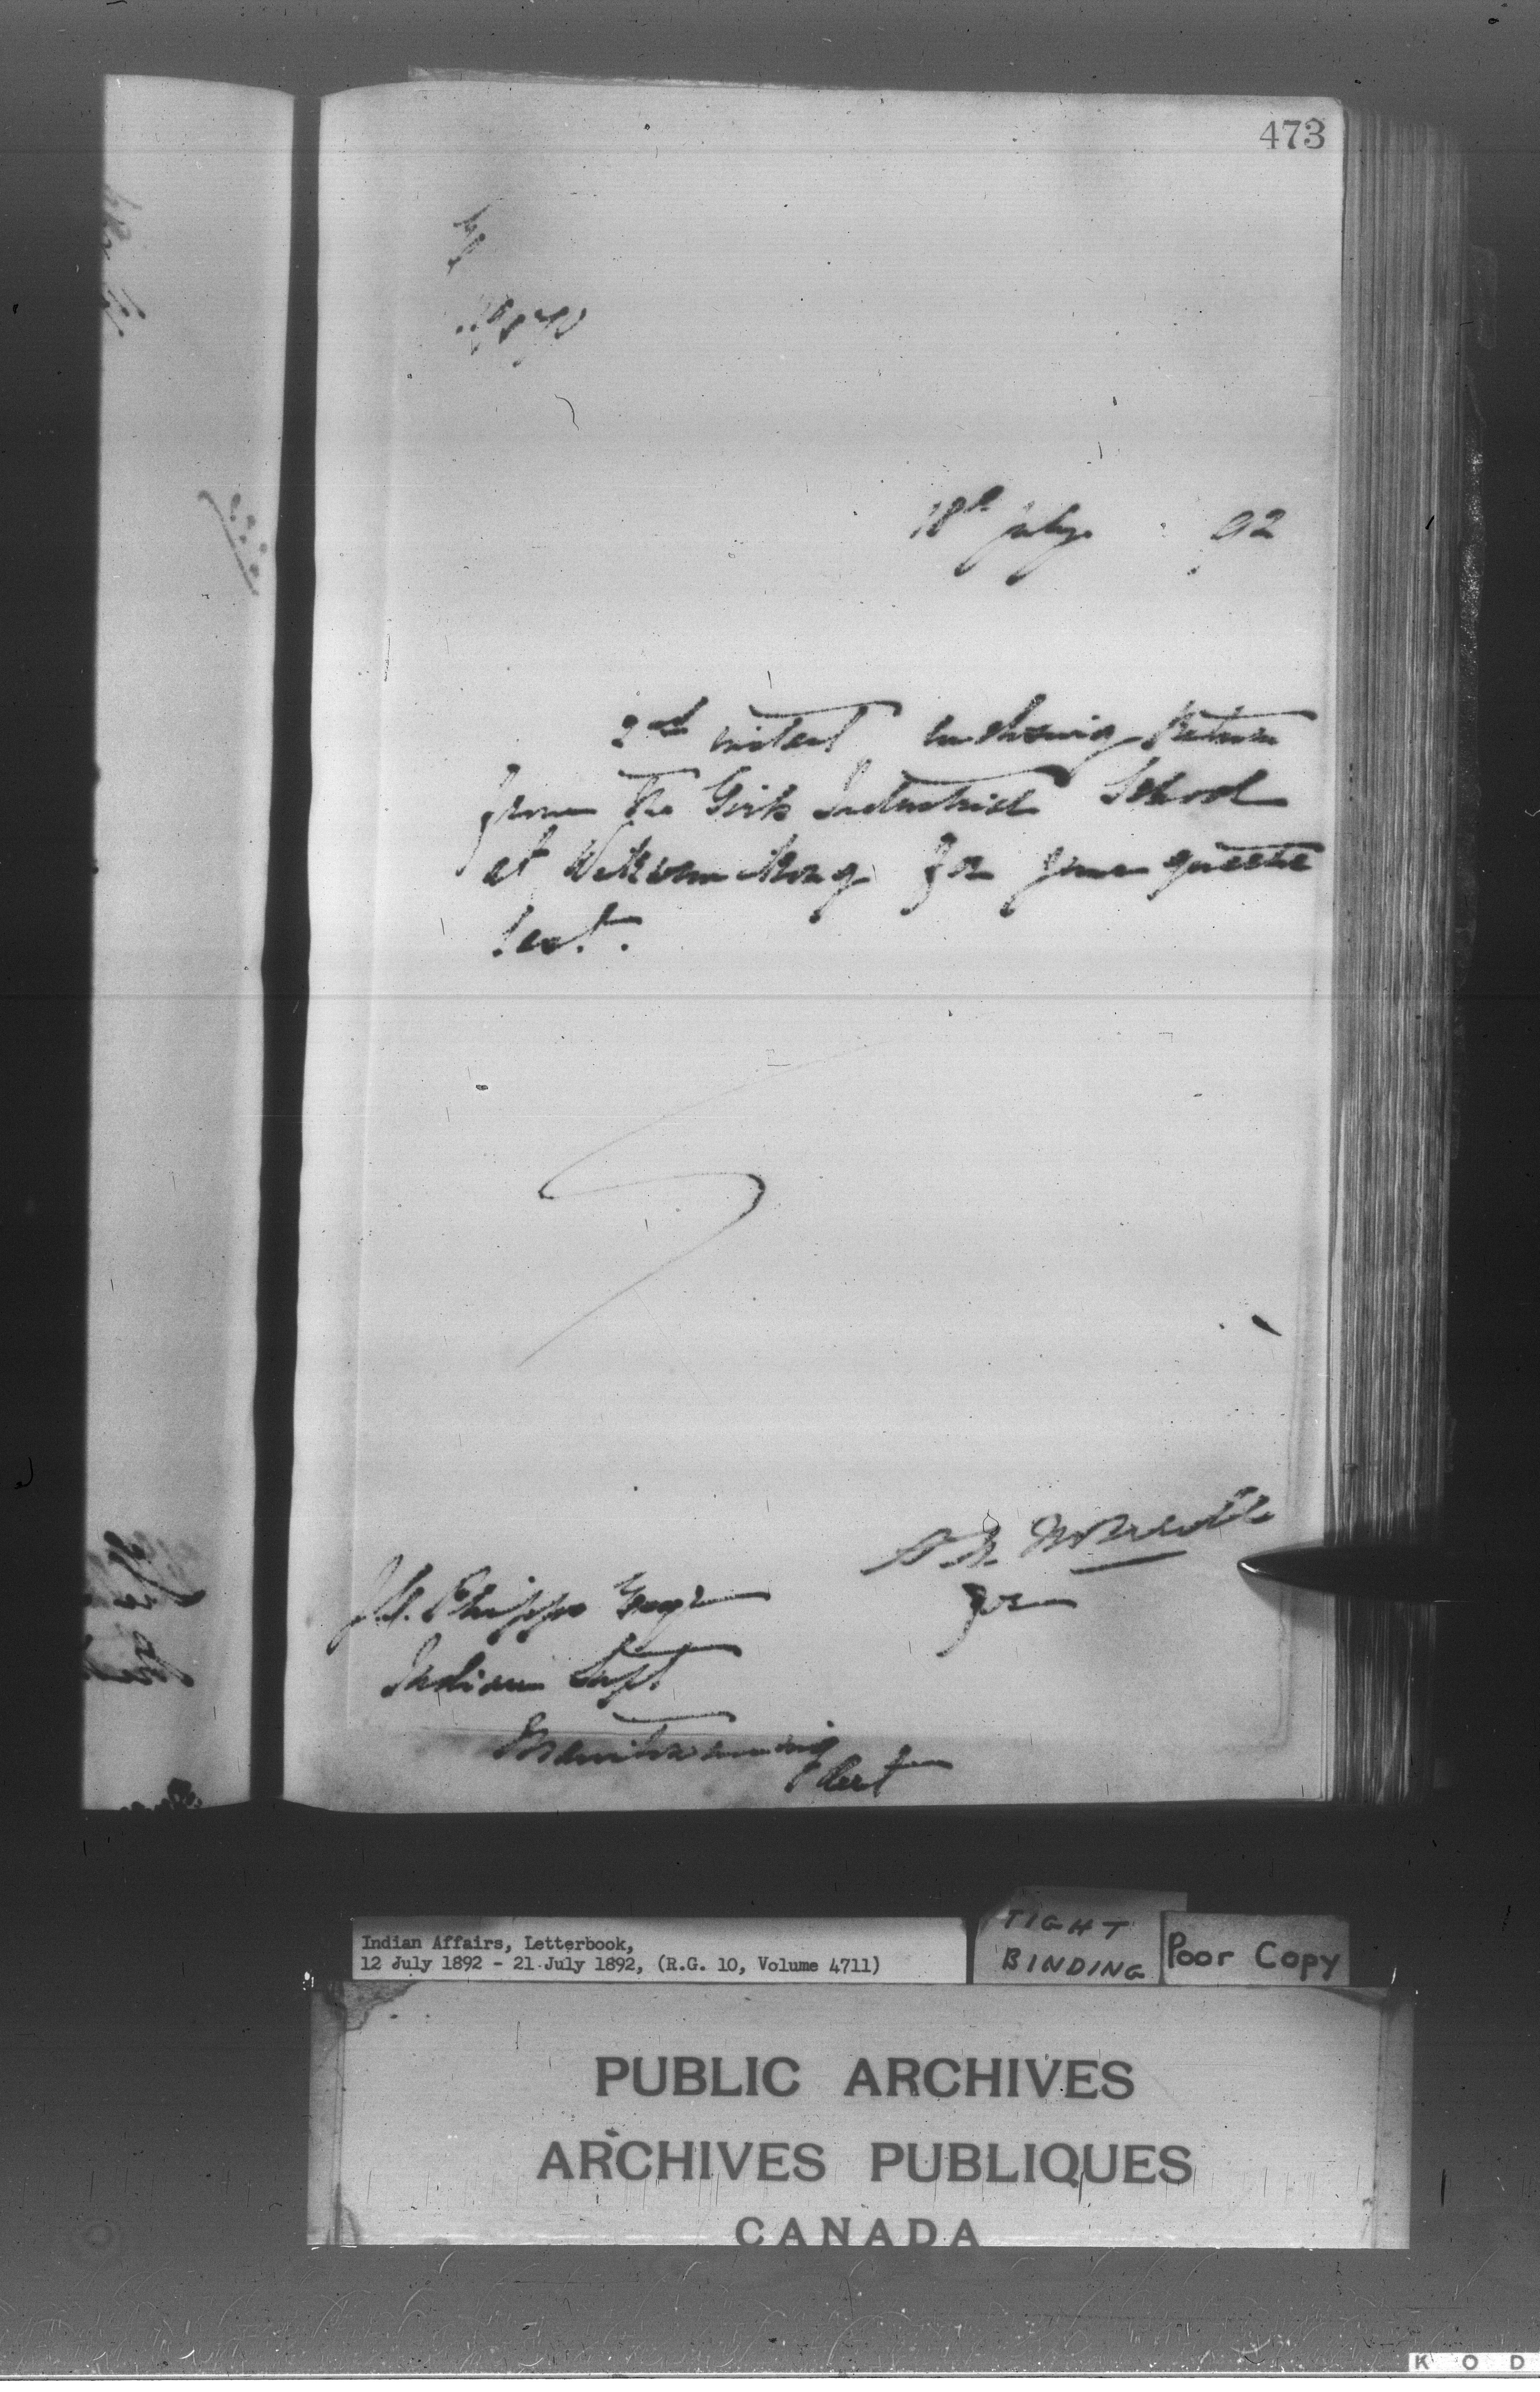 473
18th July 92
2nd instant enclosing Return
from the Girls Industrial School
at Wikwemikong for June quarter
last.
for
Jas. Phipps Esqr
Indian Supt
Manitowaning
Ont
Indian Affairs, Letterbook,
12 July 1892 - 21 July 1892, (R.G. 10, Volume 4711)
TIGHT
BINDING
Poor Copy
PUBLIC ARCHIVES
ARCHIVES PUBLIQUES
CANADA
K O D